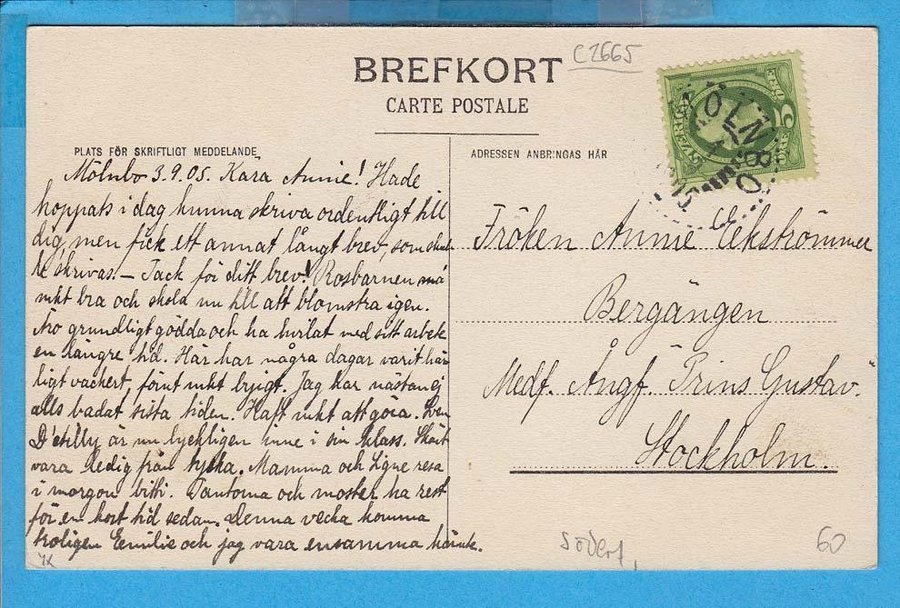 C2665
BREFKORT
CARTE POSTALE
SVERIGE
5
ÖRE
MÖLNBO
PLATS FÖR SKRIFTLIGT MEDDELANDE
ADRESSEN ANBRINGAS HÄR
Mölnbo 3.9.05. Kära Annie! Hade
hoppats i dag kunna skriva ordentligt till
dig, men fick ett annat långt brev, som skul-
le skrivas. – Tack för ditt brev! Rosbarnen må
mkt bra och skola nu till att blomstra igen.
grundligt gödda och ha hvilat ned sitt arbete
en längre tid. Här har några dagar varit här
ligt vackert, förut mkt byigt. Jag har nästan ej
alls badat sista tiden. Haft mkt att göra.
är nu lyckligen inne i sin klass. Skönt
vara ledig från tyska. Mamma och Signe resa
i morgon bitti. Tanterna och moster ha rest
för en kort tid sedan. Denna vecka komma
troligen Emilie och jag vara ensamma hämte.
Fröken Annie Eekströmmer
Bergängen
Medf. Ångf. "Prins Gustav."
Stockholm.
Söderf
60